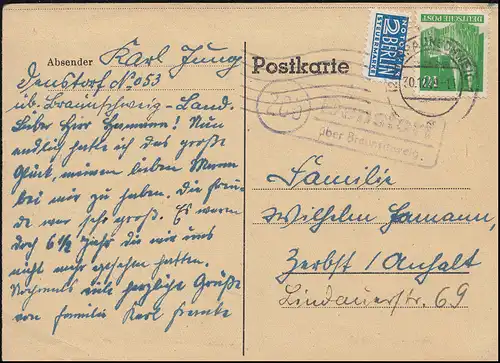 Absender Karl Jung
Denstorf No 053
üb. Braunschweig-Land.
Lieber Herr Hamann! Nun
endlich hatte ich das große
Glück, meinen lieben Mann
bei mir zu haben. Die Freu-
de war sehr groß. Es waren
doch 6 1/2 Jahr die wir uns
nicht mehr gesehen hatten.
Nochmals viele herzliche Grüße
von Familie Karl
Postkarte
NOTOPFER
2 BERLIN
STEUERMARKE
DEUTSCHE POST
(20b)
Denstorf
über Braunschweig
Familie
Wilhelm Hamann,
Zerbst / Anhalt
Lindauerstr. 69